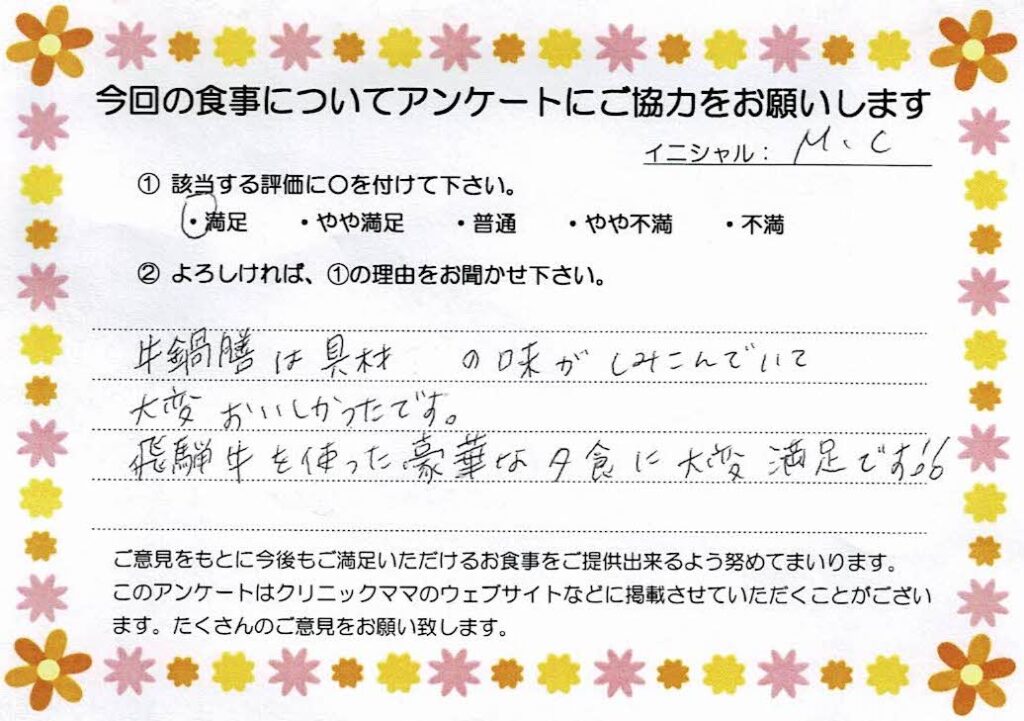 今回の食事についてアンケートにご協力をお願いします
イニシャル： M、C
① 該当する評価に〇を付けて下さい。
・満足 ・やや満足 ・普通 ・やや不満 ・不満
② よろしければ、①の理由をお聞かせ下さい。
牛鍋膳は具材 の味がしみこんでいて
大変おいしかったです。
飛騨牛を使った豪華な夕食に大変満足です!!
ご意見をもとに今後もご満足いただけるお食事をご提供出来るよう努めてまいります。
このアンケートはクリニックママのウェブサイトなどに掲載させていただくことがござい
ます。たくさんのご意見をお願い致します。